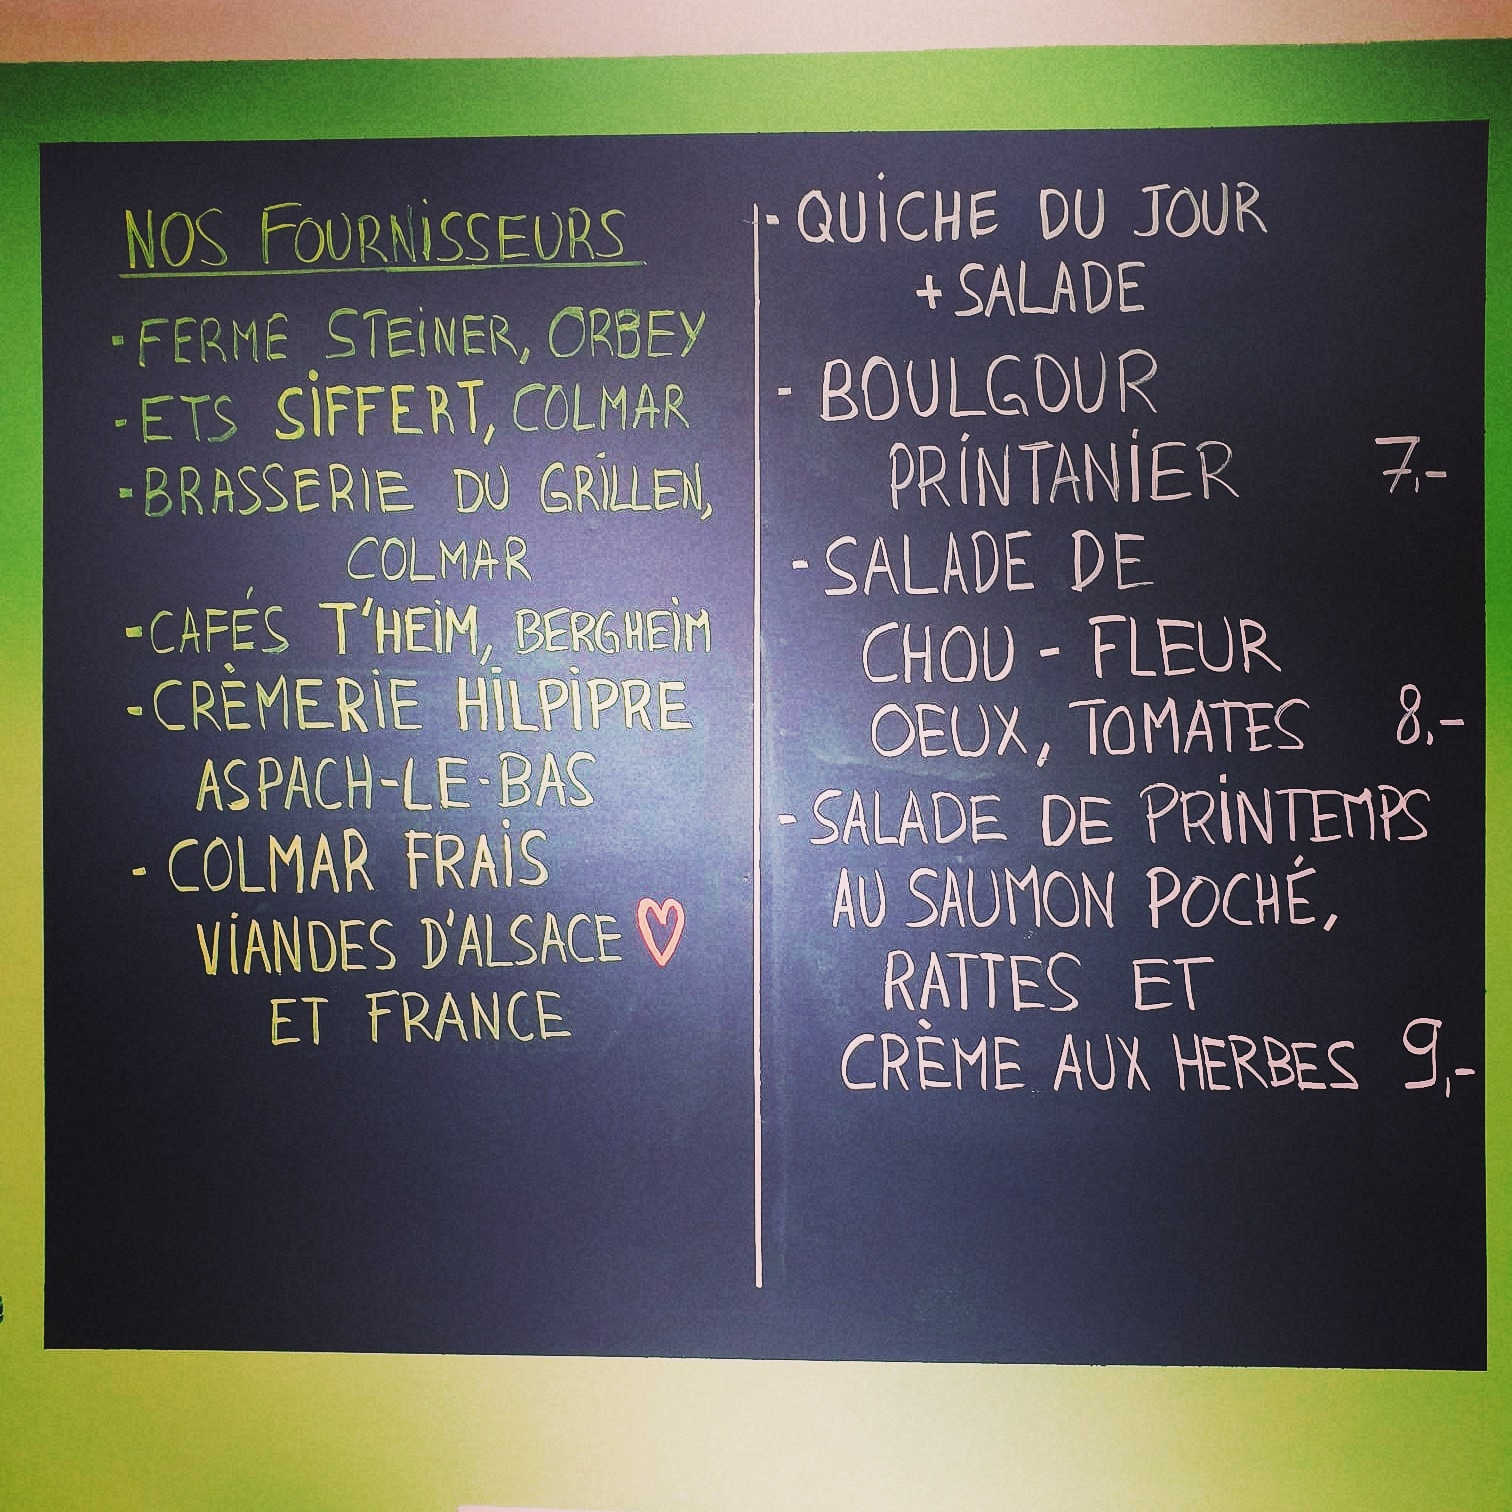 NOS FOURNISSEURS
- FERME STEINER, ORBEY
- ETS SIFFERT, COLMAR
- BRASSERIE DU GRILLEN,
COLMAR
- CAFÉS T'HEIM, BERGHEIM
- CRÈMERIE HILPIPRE
ASPACH-LE-BAS
- COLMAR FRAIS
VIANDES D'ALSACE ♡
ET FRANCE
- QUICHE DU JOUR
+ SALADE
- BOULGOUR
PRINTANIER 7,-
- SALADE DE
CHOU - FLEUR
OEUX, TOMATES 8,-
- SALADE DE PRINTEMPS
AU SAUMON POCHÉ,
RATTES ET
CRÈME AUX HERBES 9,-